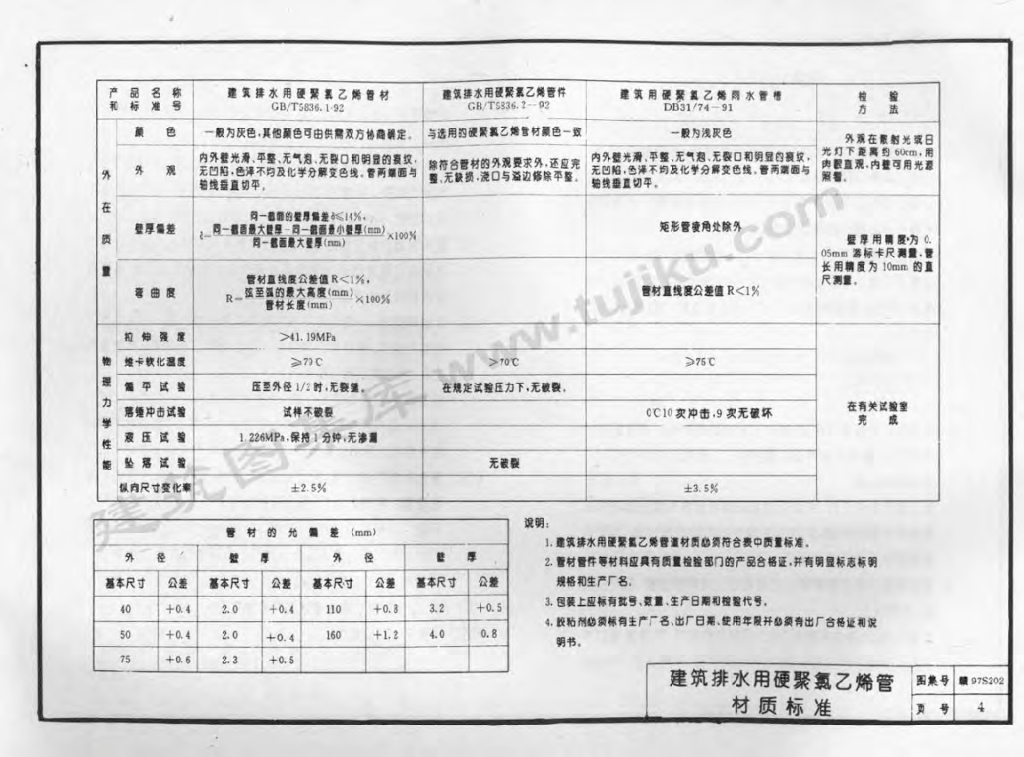 产品名称和标准号
建筑排水用硬聚氯乙烯管材
GB/T5836.1-92
建筑排水用硬聚氯乙烯管件
GB/T5836.2—92
建筑用硬聚氯乙烯雨水管槽
DB31/74—91
检验方法
外在质量
颜色
一般为灰色,其他颜色可由供需双方协商确定。
与选用的硬聚氯乙烯管材颜色一致
一般为浅灰色
外观在散射光或日
光灯下距离约60cm,用
肉眼直观,内壁可用光源
照看。
外观
内外壁光滑、平整、无气泡、无裂口和明显的痕纹,
无凹陷,色泽不均及化学分解变色线。管两端面与
轴线垂直切平。
除符合管材的外观要求外,还应完
整、无缺损,浇口与溢边修除平整。
内外壁光滑、平整、无气泡、无裂口和明显的痕纹,
无凹陷,色泽不均及化学分解变色线。管两端面与
轴线垂直切平。
壁厚偏差
同一截面的壁厚偏差δ≤14%,
δ=同一截面最大壁厚-同一截面最小壁厚(mm)
同一截面最大壁厚(mm)
×100%
矩形管棱角处除外
壁厚用精度为0.
05mm游标卡尺测量,管
长用精度为10mm的直
尺测量。
弯曲度
管材直线度公差值R<1%,
R=弦至弧的最大高度(mm)
管材长度(mm)
×100%
管材直线度公差值R<1%
物理力学性能
拉伸强度
>41.19MPa
维卡软化温度
≥79℃
>70℃
≥75℃
扁平试验
压至外径1/2时,无裂缝。
在规定试验压力下,无破裂。
在有关试验室
完成
落锤冲击试验
试样不破裂
0℃10次冲击,9次无破坏
液压试验
1.226MPa,保持1分钟,无渗漏
坠落试验
无破裂
纵向尺寸变化率
±2.5%
±3.5%
管材的允偏差(mm)
外径 壁厚 外径 壁厚
基本尺寸 公差 基本尺寸 公差 基本尺寸 公差 基本尺寸 公差
40 +0.4 2.0 +0.4 110 +0.8 3.2 +0.5
50 +0.4 2.0 +0.4 160 +1.2 4.0 0.8
75 +0.6 2.3 +0.5
说明:
1.建筑排水用硬聚氯乙烯管道材质必须符合表中质量标准。
2.管材管件等材料应具有质量检验部门的产品合格证,并有明显标志标明
规格和生产厂名。
3.包装上应标有批号、数量、生产日期和检验代号。
4.胶粘剂必须标有生产厂名、出厂日期、使用年限并必须有出厂合格证和说
明书。
建筑排水用硬聚氯乙烯管
材质标准
图集号 赣97S202
页号 4
建筑图集库 www.tujiku.com